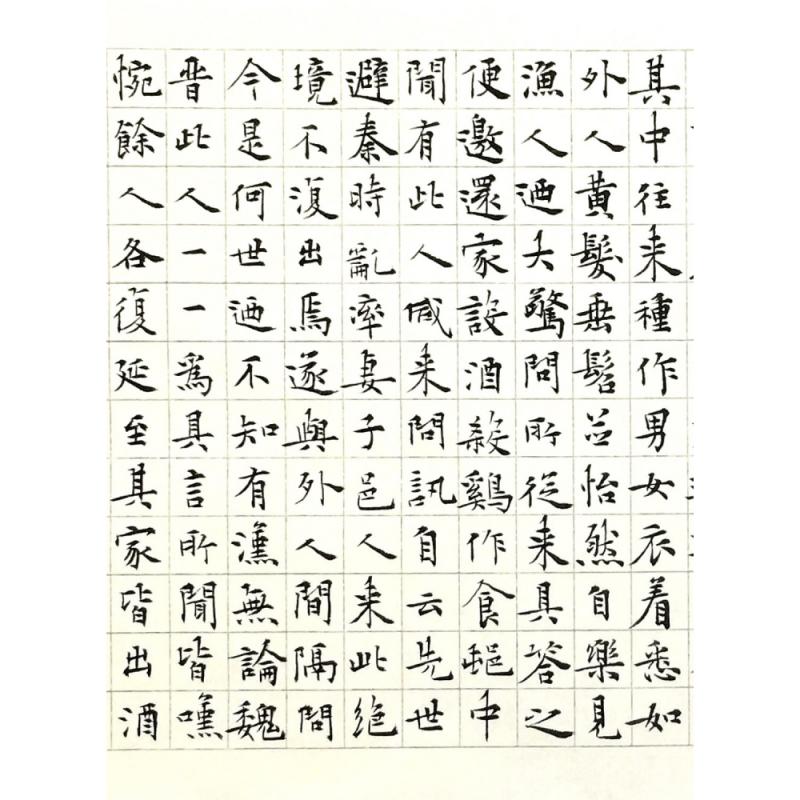 其中往来種作男女衣着悉如
外人黄髮垂髫並怡然自樂見
漁人迺大驚問所從来具答之
便邀還家設酒殺鷄作食邨中
聞有此人咸来問訊自云先世
避秦時亂率妻子邑人来此絶
境不復出焉遂與外人間隔問
今是何世迺不知有漢無論魏
晋此人一一爲具言所聞皆嘆
惋餘人各復延至其家皆出酒